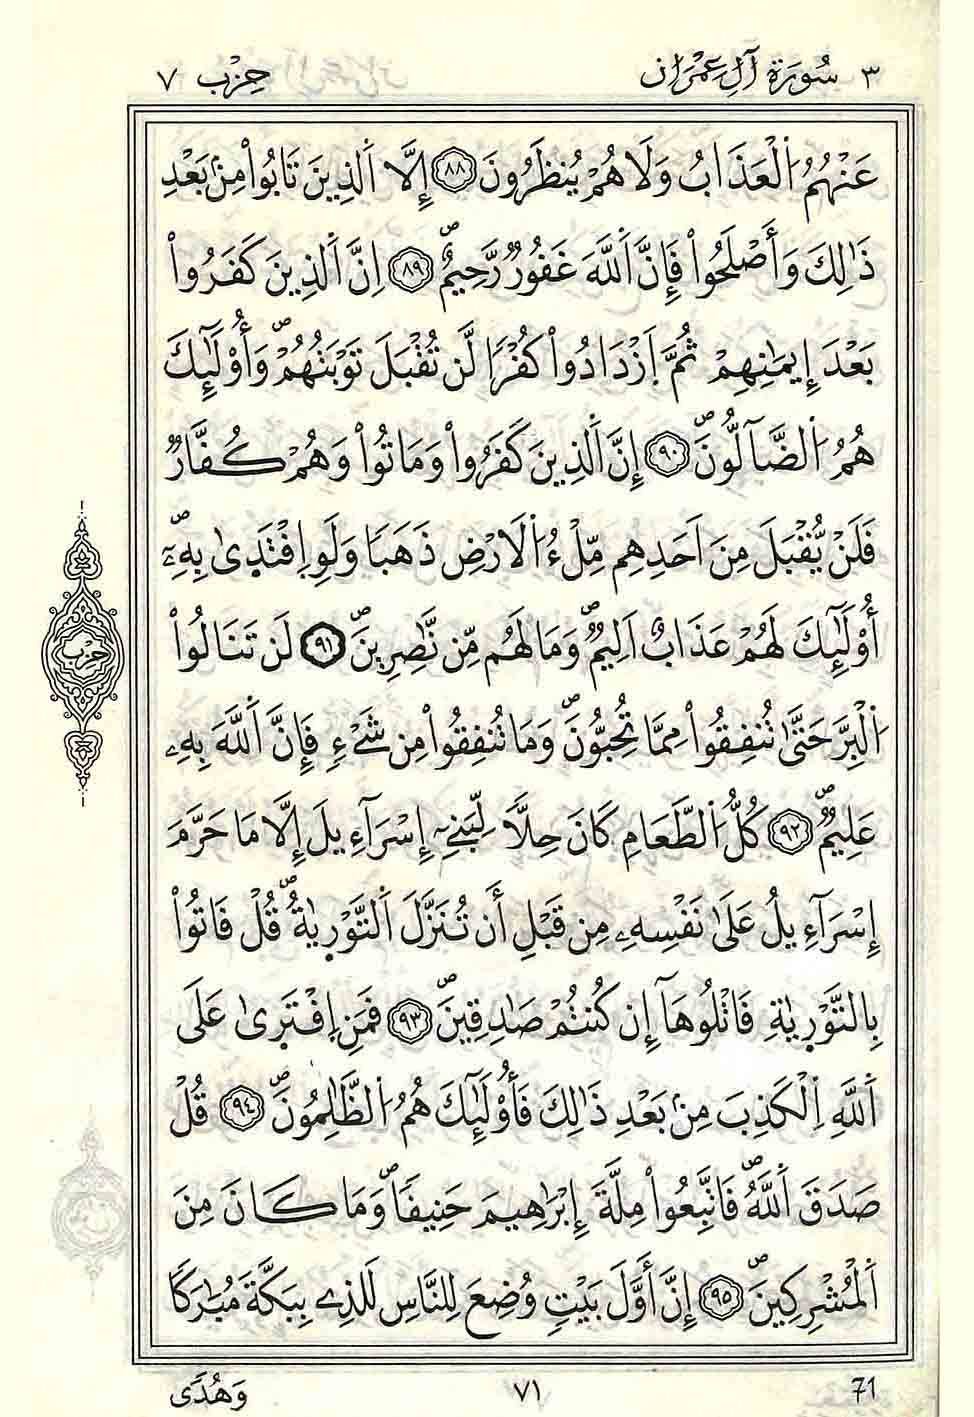 ٣ سُورَةُ آلِ عِمْرَان حِزْب ٧
عَنْهُمُ اُلْعَذَابُ وَلَا هُمْ يُنظَرُونَ ٨٨ إِلَّا اَلذِينَ تَابُواْ مِنۢ بَعْدِ
ذَٰلِكَ وَأَصْلَحُواْ فَإِنَّ اَللَّهَ غَفُورٞ رَّحِيمٌۖ ٨٩ اِنَّ اَلذِينَ كَفَرُواْ
بَعْدَ إِيمَٰنِهِمْ ثُمَّ اَزْدَادُواْ كُفْرٗا لَّن تُقْبَلَ تَوْبَتُهُمْۖ وَأُوْلَٰٓئِكَ
هُمُ اُلضَّآلُّونَۖ ٩٠ إِنَّ اَلذِينَ كَفَرُواْ وَمَاتُواْ وَهُمْ كُفَّارٞ
فَلَنْ يُّقْبَلَ مِنَ اَحَدِهِم مِّلْءُ اُلَارْضِ ذَهَبٗا وَلَوِ اِفْتَد۪ىٰ بِهِۦٓۖ
أُوْلَٰٓئِكَ لَهُمْ عَذَابٌ اَلِيمٞۖ وَمَا لَهُم مِّن نَّٰصِرِينَۖ ٩١ لَن تَنَالُواْ
اُلْبِرَّ حَتَّىٰ تُنفِقُواْ مِمَّا تُحِبُّونَۖ وَمَا تُنفِقُواْ مِن شَےْءٖ فَإِنَّ اَللَّهَ بِهِۦ
عَلِيمٞۖ ٩٢ كُلُّ اُلطَّعَامِ كَانَ حِلّٗا لِّبَنِےٓ إِسْرَآءِيلَ إِلَّا مَا حَرَّمَ
إِسْرَآءِيلُ عَلَىٰ نَفْسِهِۦ مِن قَبْلِ أَن تُنَزَّلَ اَلتَّوْر۪يٰةُۖ قُلْ فَاتُواْ
بِالتَّوْر۪يٰةِ فَاتْلُوهَآ إِن كُنتُمْ صَٰدِقِينَۖ ٩٣ فَمَنِ اِفْتَر۪ىٰ عَلَى
اَللَّهِ اِلْكَذِبَ مِنۢ بَعْدِ ذَٰلِكَ فَأُوْلَٰٓئِكَ هُمُ اُلظَّٰلِمُونَۖ ٩٤ قُلْ
صَدَقَ اَللَّهُۖ فَاتَّبِعُواْ مِلَّةَ إِبْرَٰهِيمَ حَنِيفٗاۖ وَمَا كَانَ مِنَ
اَلْمُشْرِكِينَۖ ٩٥ إِنَّ أَوَّلَ بَيْتٖ وُضِعَ لِلنَّاسِ لَلذِے بِبَكَّةَ مُبَٰرَكٗا
حِزْب
71 ٧١ وَهُدًى